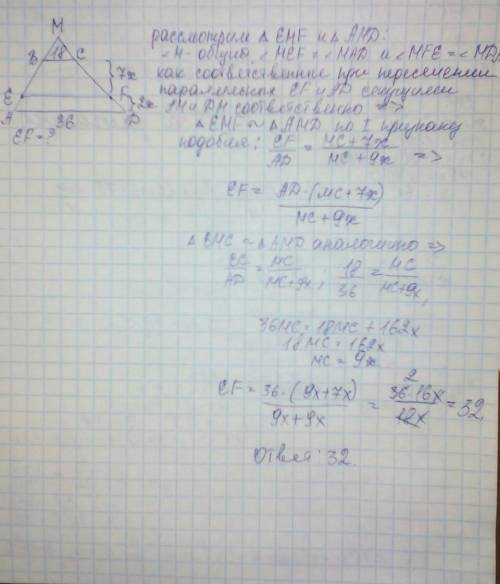 M
B 18 C
7x
E F
2x
A 36 D
EF = ?
рассмотрим △ EMF и △ AMD:
∠M - общий, ∠MEF = ∠MAD и ∠MFE = ∠MDA
как соответственные при пересечении
параллельных EF и AD секущими
AM и DM соответственно =>
△ EMF ~ △ AMD по I признаку
подобия: EF/AD = (MC + 7x)/(MC + 9x) =>
EF = AD·(MC+7x)/(MC+9x)
△ BMC ~ △ AMD аналогично =>
BC/AD = MC/(MC+9x), 18/36 = MC/(MC+9x),
36MC = 18MC + 162x
18MC = 162x
MC = 9x
EF = 36·(9x+7x)/(9x+9x) = 36·16x/18x = 32
2
Ответ: 32.